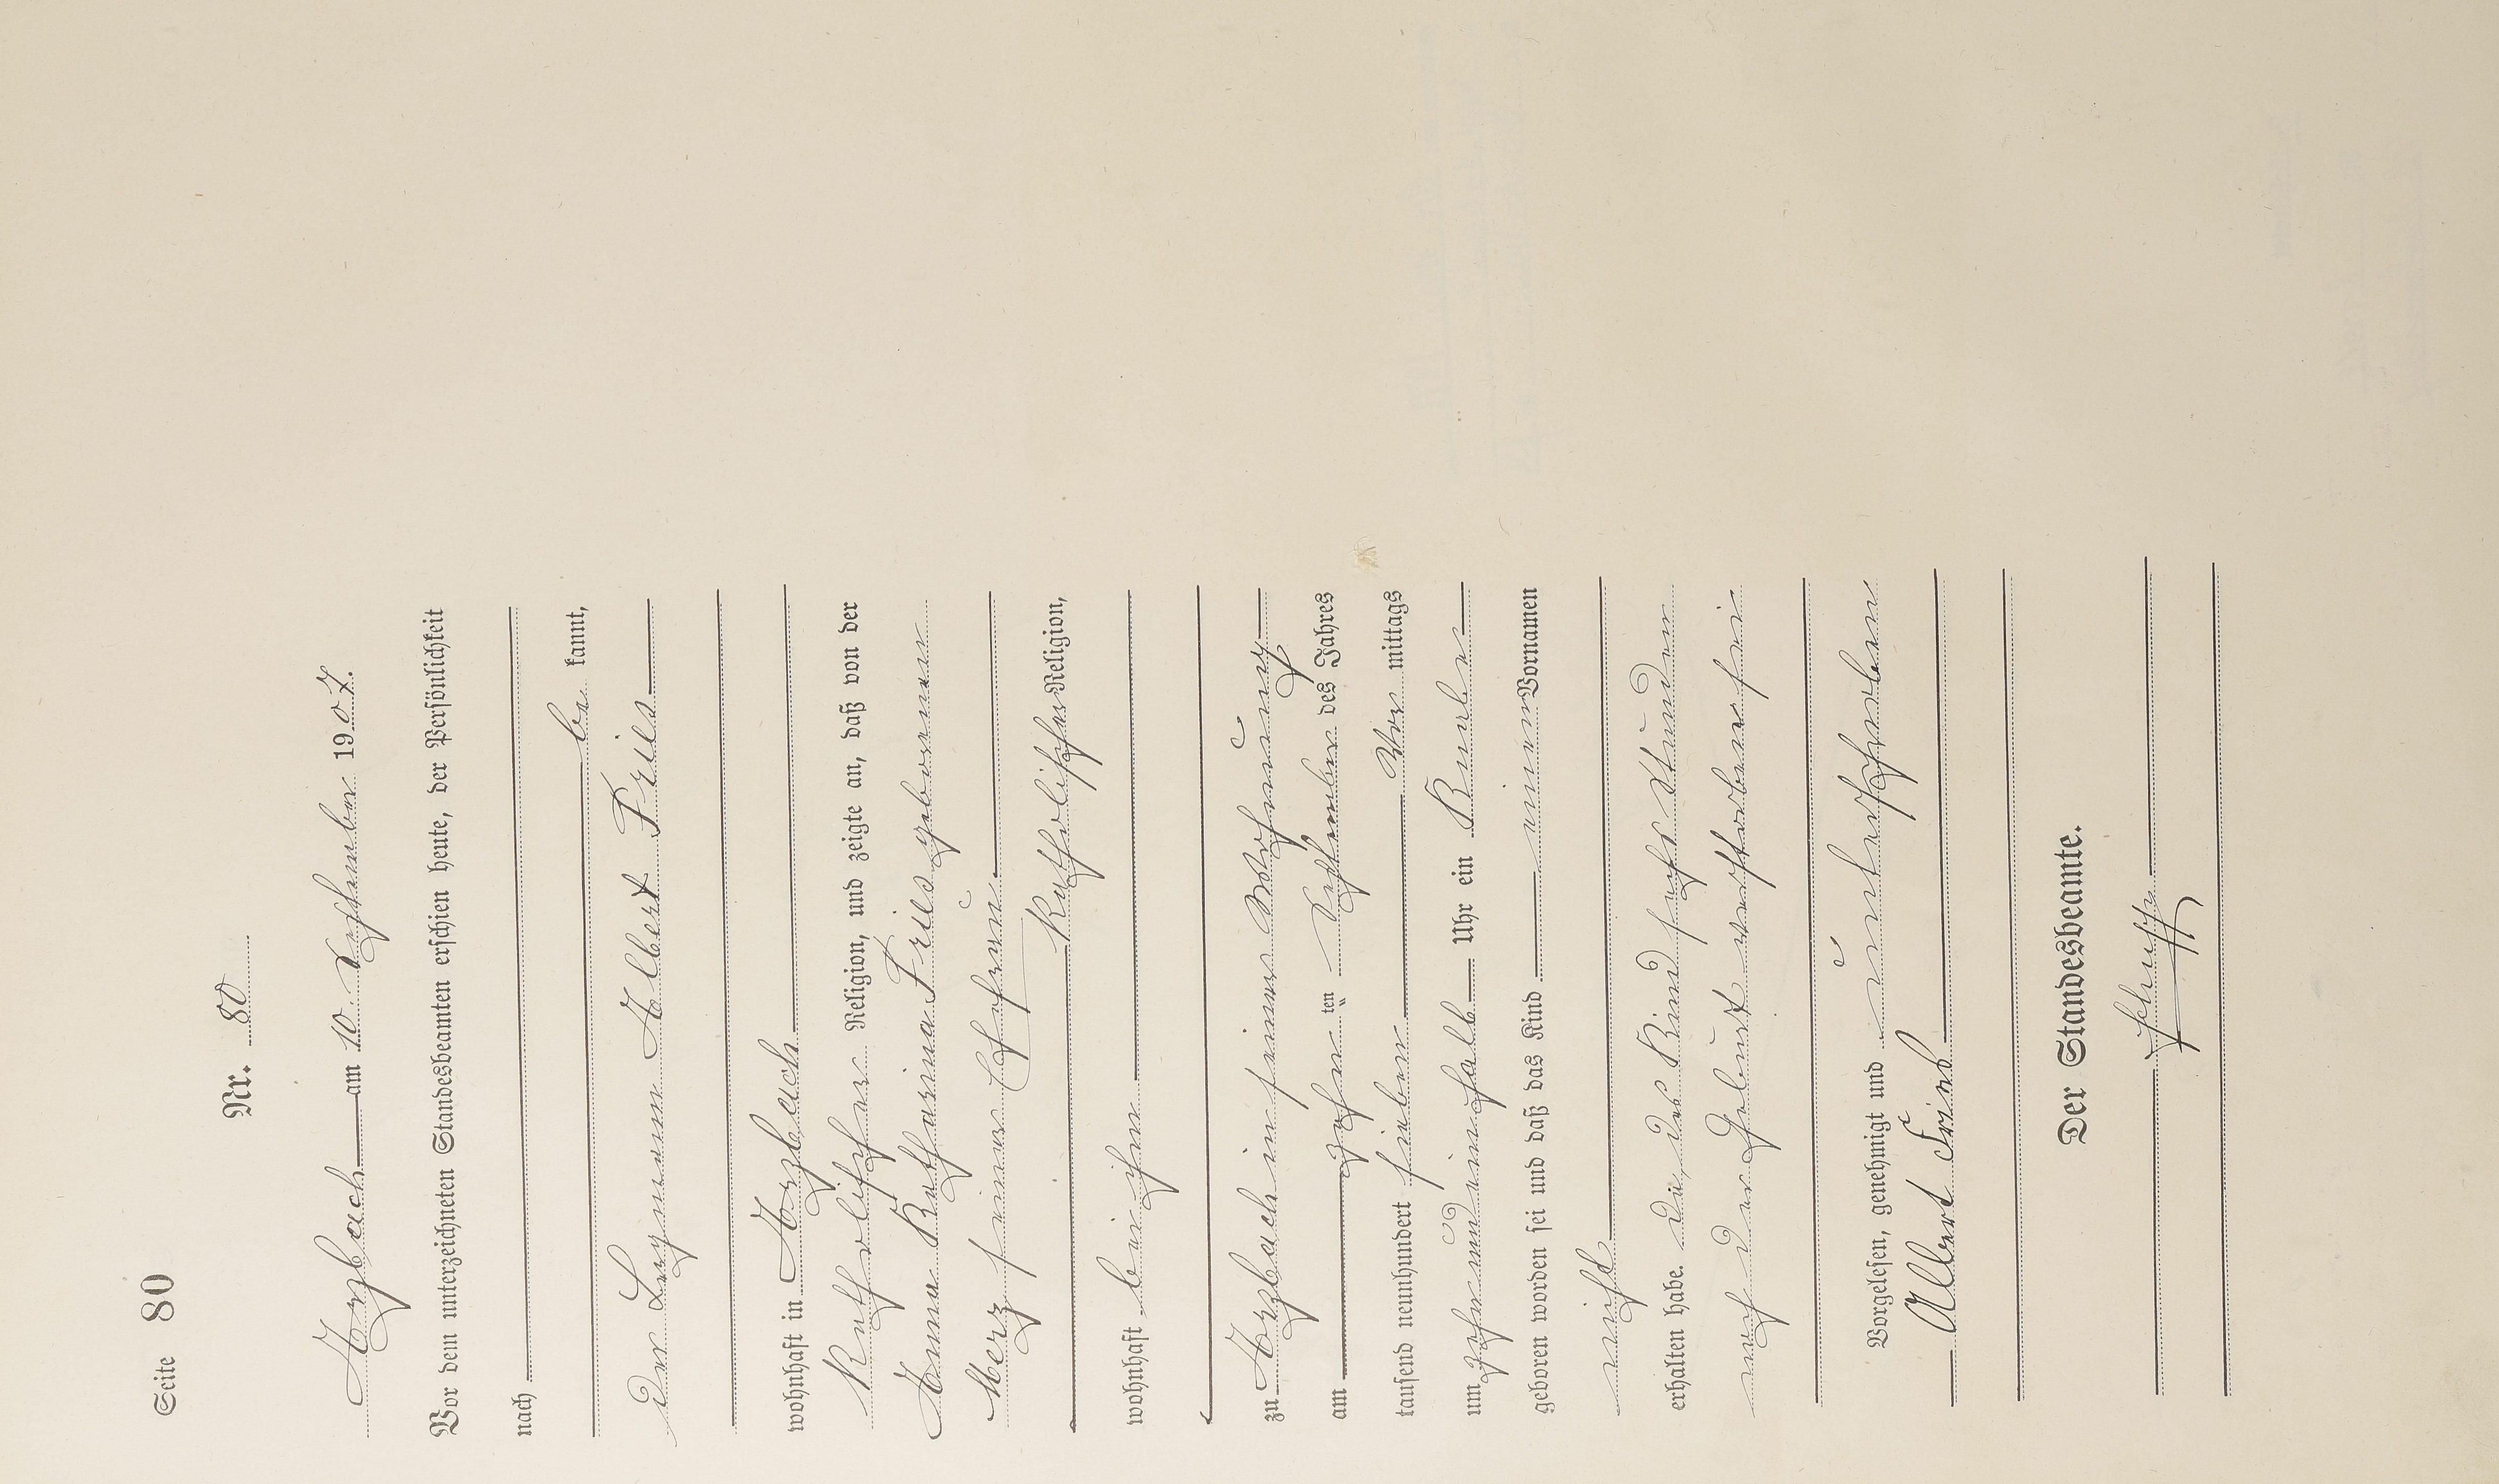 Seite 80
Nr. 80
Arzbach am 10. September 1907.
Vor dem unterzeichneten Standesbeamten erschien heute, der Persönlichkeit
nach
be kannt,
der Bergmann Albert Fries
wohnhaft in Arzbach
Katholischer Religion, und zeigte an, daß von der
Anna Katharina Fries geborenen
Merz seiner Ehefrau.
Katholischer Religion,
wohnhaft bei ihm
zu Arzbach in seiner Wohnung
am zehn ten September des Jahres
tausend neunhundert sieben Vor mittags
um zehneinhalb Uhr ein Knabe
geboren worden sei und daß das Kind einen Vornamen
nicht
erhalten habe. da, das Kind sechs Stunden
nach der Geburt verstorben sei
Vorgelesen, genehmigt und unterschrieben
Albert Fries
Der Standesbeamte.